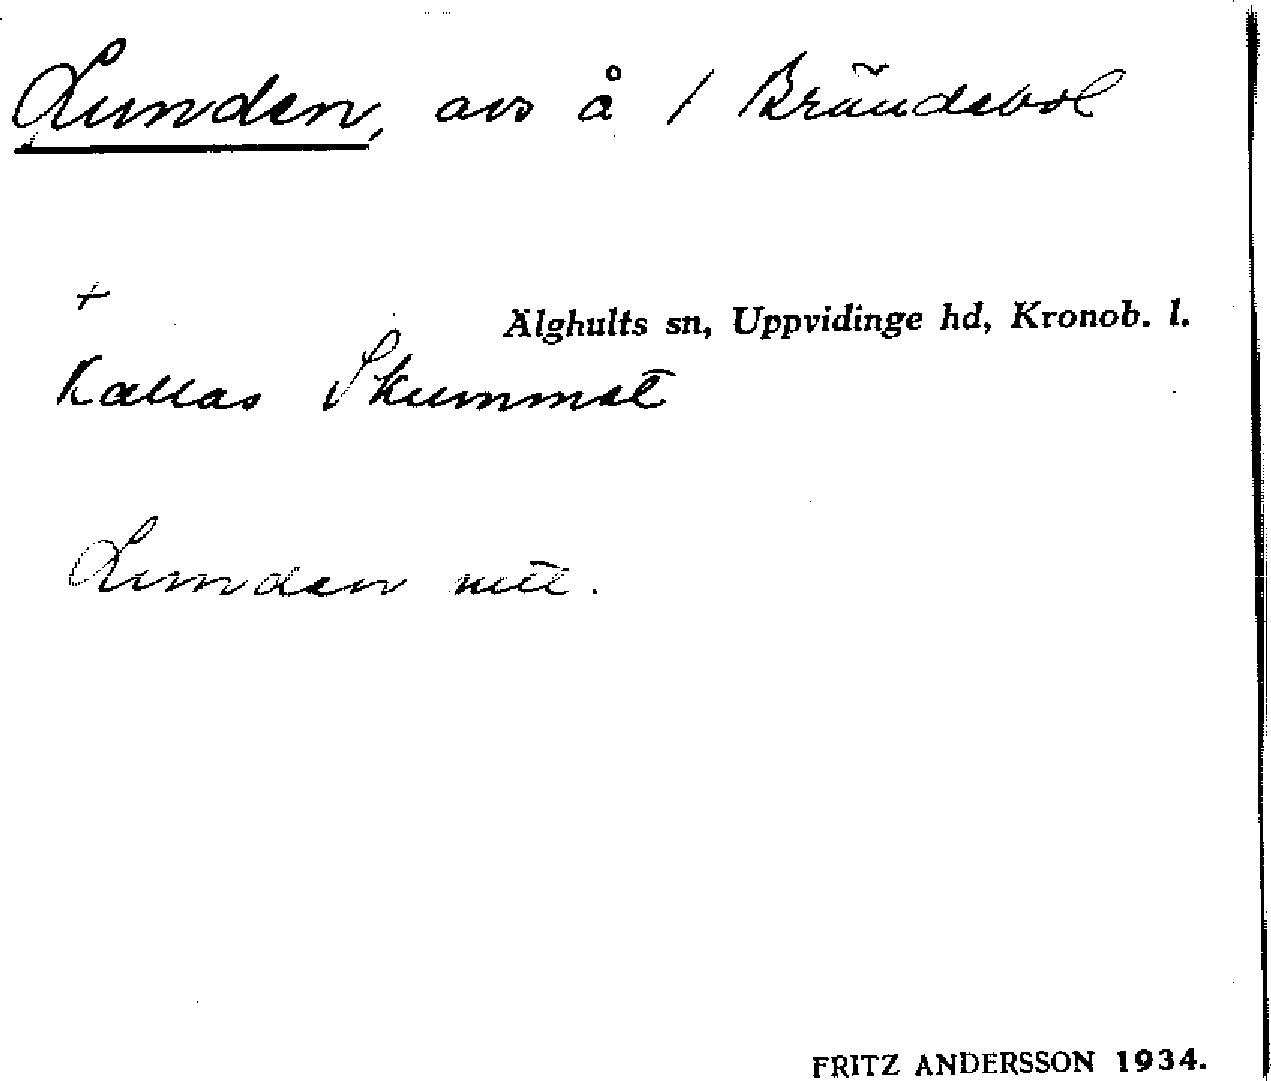 Lunden, avs å 1 Brändebol
+
Älghults sn, Uppvidinge hd, Kronob. l.
Kallas Skummet
Lunden
FRITZ ANDERSSON 1934.